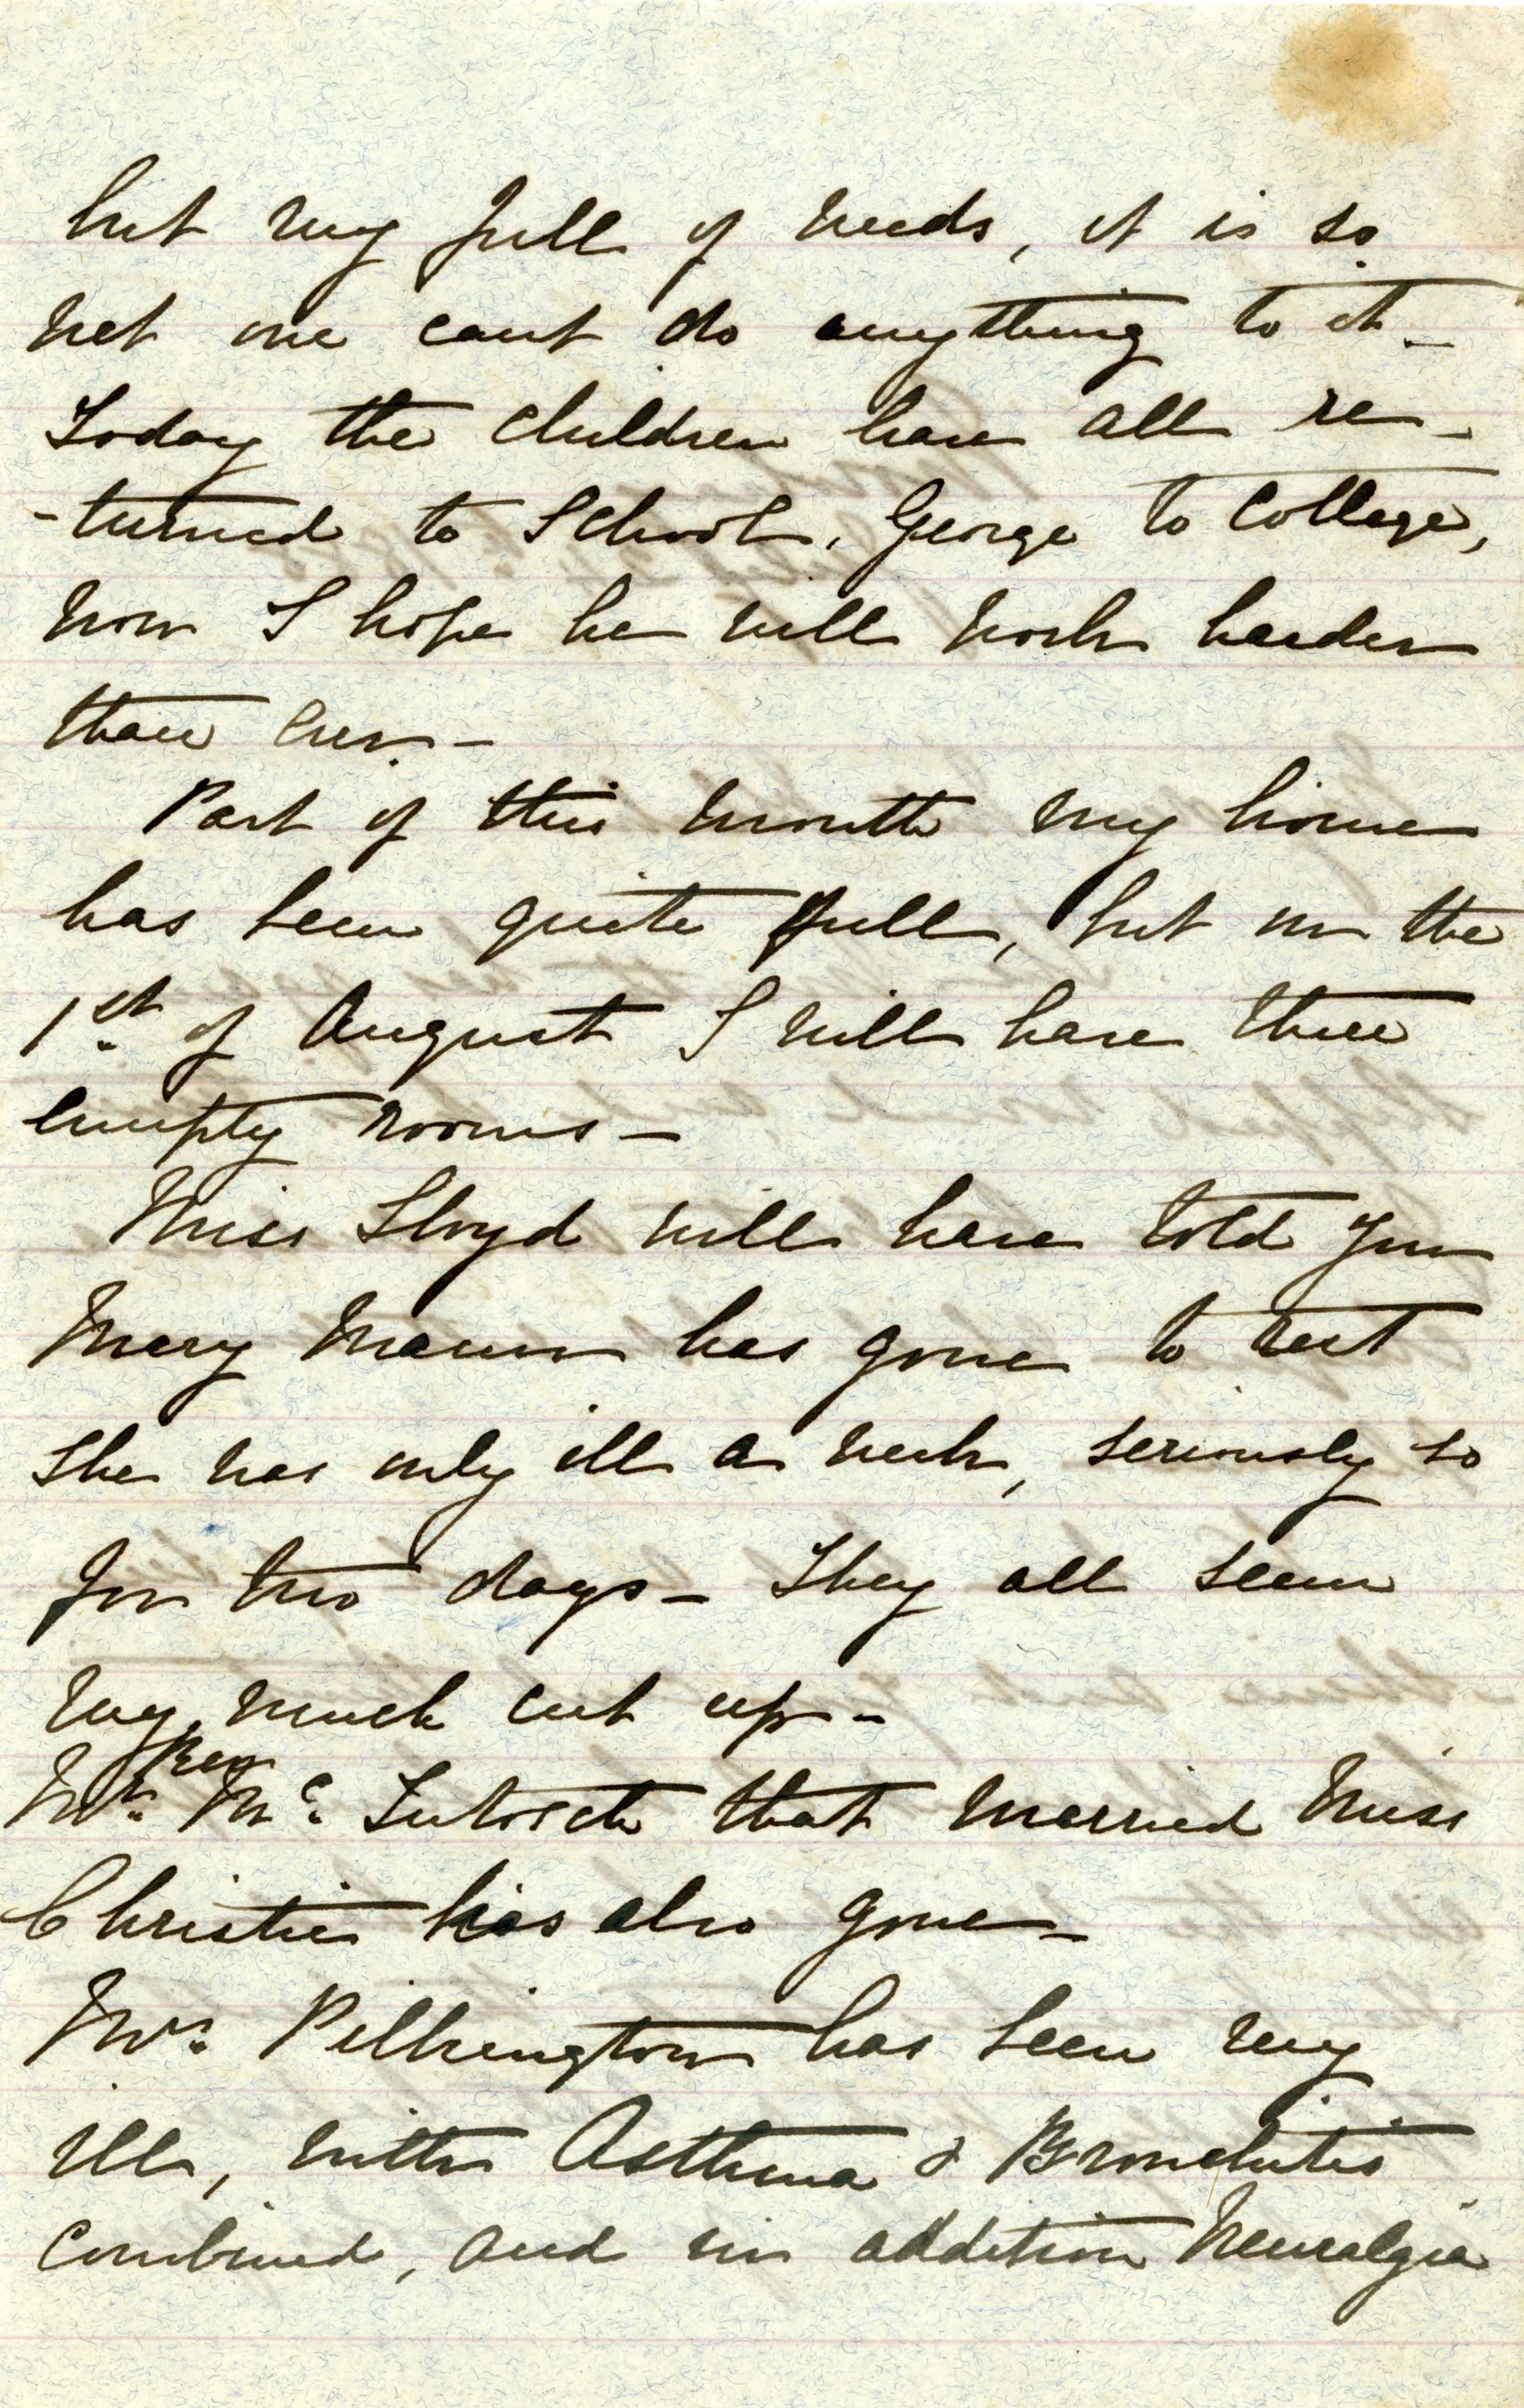 but very full of weeds, it is so
wet one cant do anything to it -
Today the children have all re-
-turned to School, George to College,
now I hope he will work harder
than ever -
Part of this month my house
has been quite full, but on the
1st. of August I will have three
empty rooms -
Miss Lloyd will have told you
Mary Mann has gone to rest
She was only ill a week, seriously so
for two days - They all seem
very much cut up -
Rev
Mr. Mc. Intosch that married Miss
Christie has also gone -
Mrs. Pilkington has been very
ill, with Asthma & Bronchitis
combined, and in addition Neuralgia